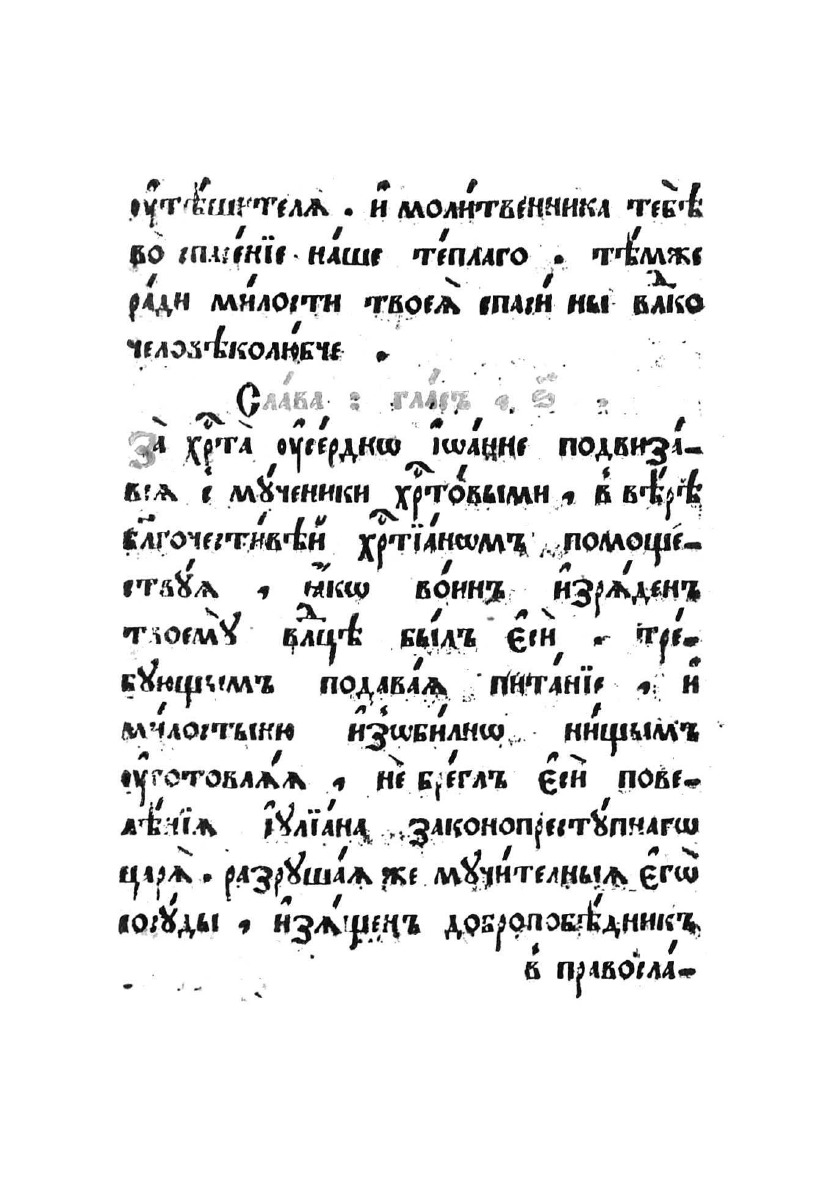 ᲂу҆тѣ́шителѧ . и҆ моли́твенника тебѣ̀
во̀ спасе́нїе на́ше те́плаго . тѣ́мже
ра́ди ми́лости твоеѧ̀ спаси́ ны влⷣко
человѣколю́бче .
Сла́ва : гла́съ , ѕ҃ :
За̀ хрⷭ҇та̀ ᲂу҆се́рднѡ і҆ѡа́нне подвиза́-
всѧ с̾ мꙋ́ченики хрⷭ҇то́выми , в̾ вѣ́рѣ
бл҃гочести́вѣй хрⷭ҇тїа́нѡмъ помоще-
ствꙋ́ѧ , ꙗ҆́кѡ во́инъ и҆зрѧ́денъ
твоемꙋ̀ влⷣцѣ бы́лъ є҆сѝ . тре́-
бꙋющымъ подава́ѧ пита́нїе , и҆
ми́лостыню и҆з̾ѡби́лнѡ ни́щымъ
ᲂу҆готовлѧ́ѧ , не бре́глъ є҆сѝ пове-
лѣ́нїѧ і҆ꙋлїа́на законопрестꙋ́пнагѡ
царѧ̀ . разрꙋша́ѧ же мꙋчи́телныѧ є҆гѡ̀
сосꙋ́ды , и҆зѧ́щенъ добропобѣ́дникъ
в̾ правосла́-